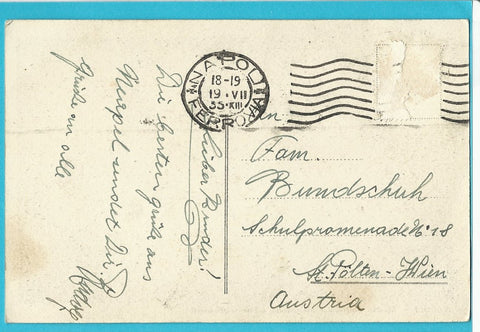 NAPOLI
FERROVIA
18-19
19·VII
35·XIII
An
Fam.
Bundschuh
Schulpromenade No 18
St. Pölten - Wien
Austria
Lieber Bruder!
Die besten Grüße aus
Neapel sendet Dir
Grüße an alle